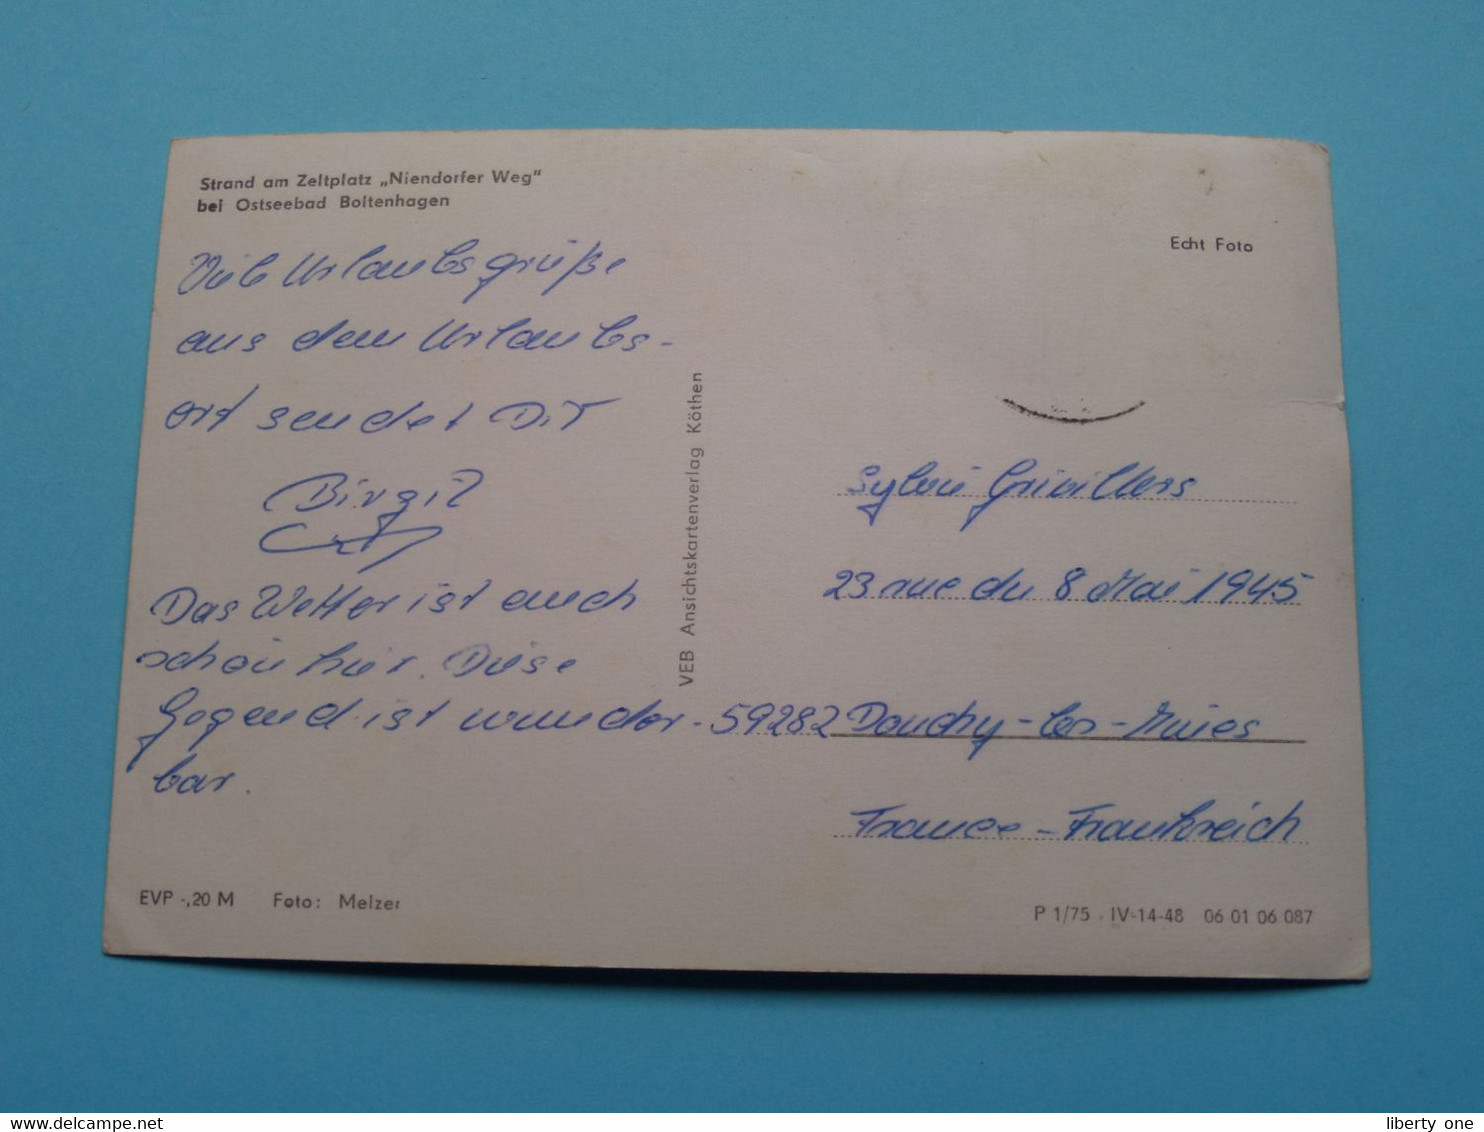 Strand am Zeltplatz „Niendorfer Weg"
bei Ostseebad Boltenhagen
Echt Foto
Viele Urlaubsgrüße
aus dem Urlaubs-
ort sendet Dir
Birgit
Das Wetter ist auch
schön hier. Diese
Gegend ist wunder-
bar.
VEB Ansichtskartenverlag Köthen
Sylvie Grivillers
23 rue du 8 Mai 1945
59282 Douchy-les-Mines
France - Frankreich
EVP -,20 M Foto: Melzer
P 1/75 · IV-14-48 06 01 06 087
liberty one